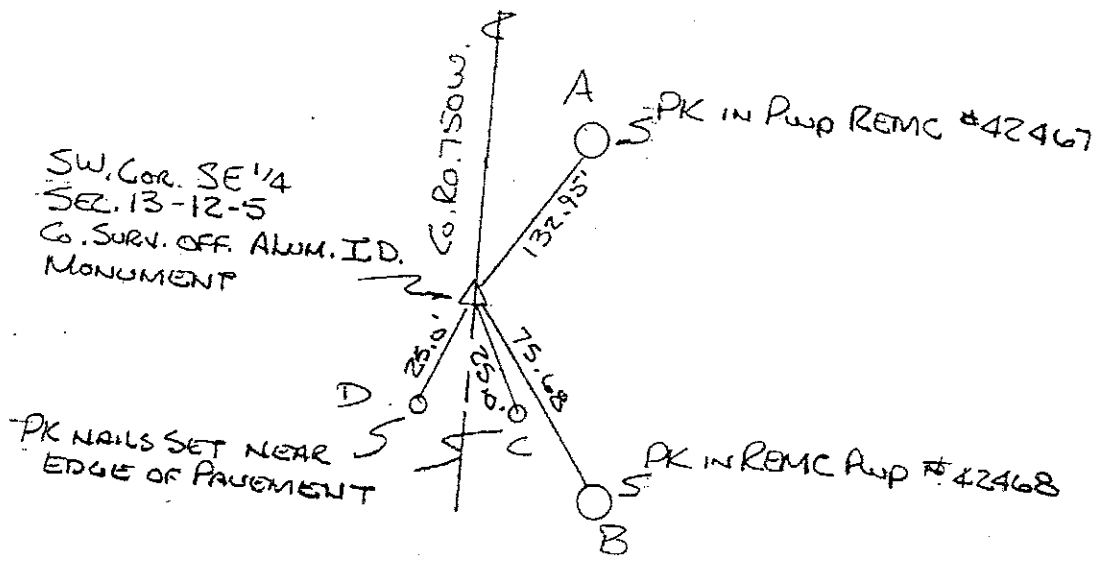 Co. RD. 750W.
A
PK IN PWP REMC #42467
132.95'
SW. COR. SE 1/4
SEC. 13-12-5
CO. SURV. OFF. ALUM. I.D.
MONUMENT
25.0'
25.0'
75.68
D
C
PK NAILS SET NEAR
EDGE OF PAVEMENT
PK IN REMC PWP #42468
B